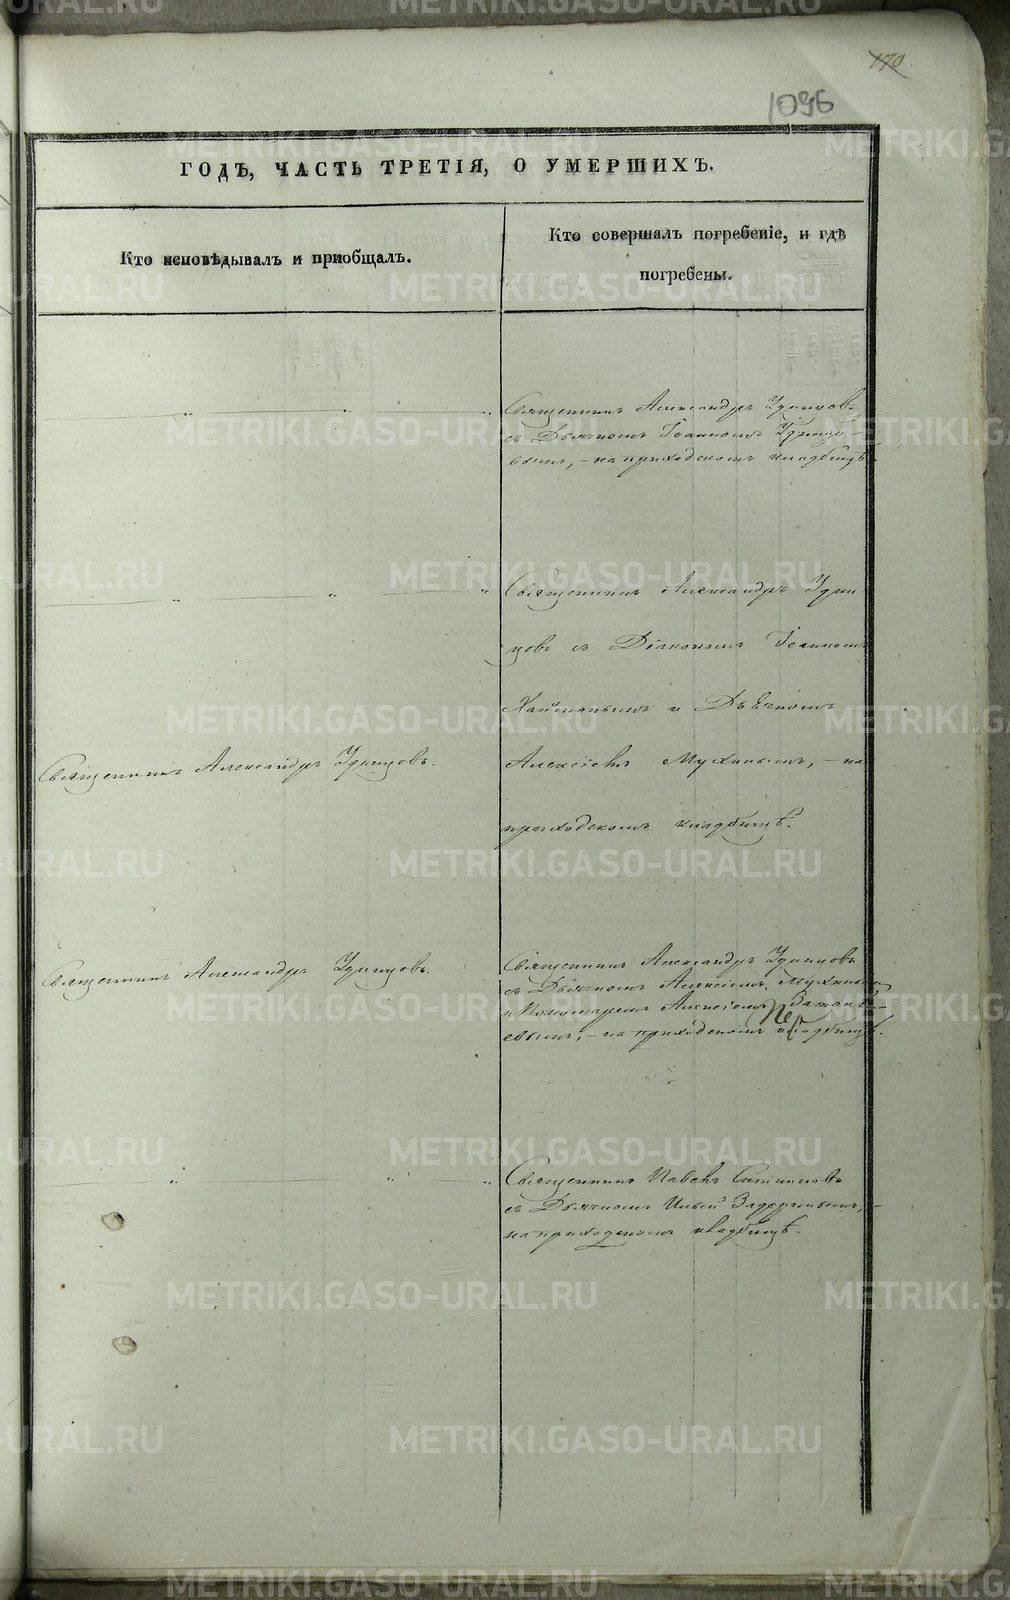 170.
1096
ГОДЪ, ЧАСТЬ ТРЕТІЯ, О УМЕРШИХЪ.
Кто исповѣдывалъ и пріобщалъ.
Кто совершалъ погребеніе, и гдѣ
погребены.
Священникъ Александръ Удинцовъ
съ Дьячкомъ Іоанномъ Удинцо-
вымъ, - на приходскомъ кладбищѣ.
Священникъ Александръ Удин-
цовъ съ Діакономъ Іоанномъ
и Дьячкомъ
Священникъ Александръ Удинцовъ.
Алексіемъ Мухинымъ, - на
приходскомъ кладбищѣ.
Священникъ Александръ Удинцовъ.
Священникъ Александръ Удинцовъ
съ Дьячкомъ Алексіемъ Мухинымъ
и Пономаремъ Алексіемъ
евымъ, - на приходскомъ кладбищѣ.
Священникъ Павелъ
съ Дьячкомъ Ильей Задоринымъ, -
на приходскомъ кладбищѣ.
METRIKI.GASO-URAL.RU